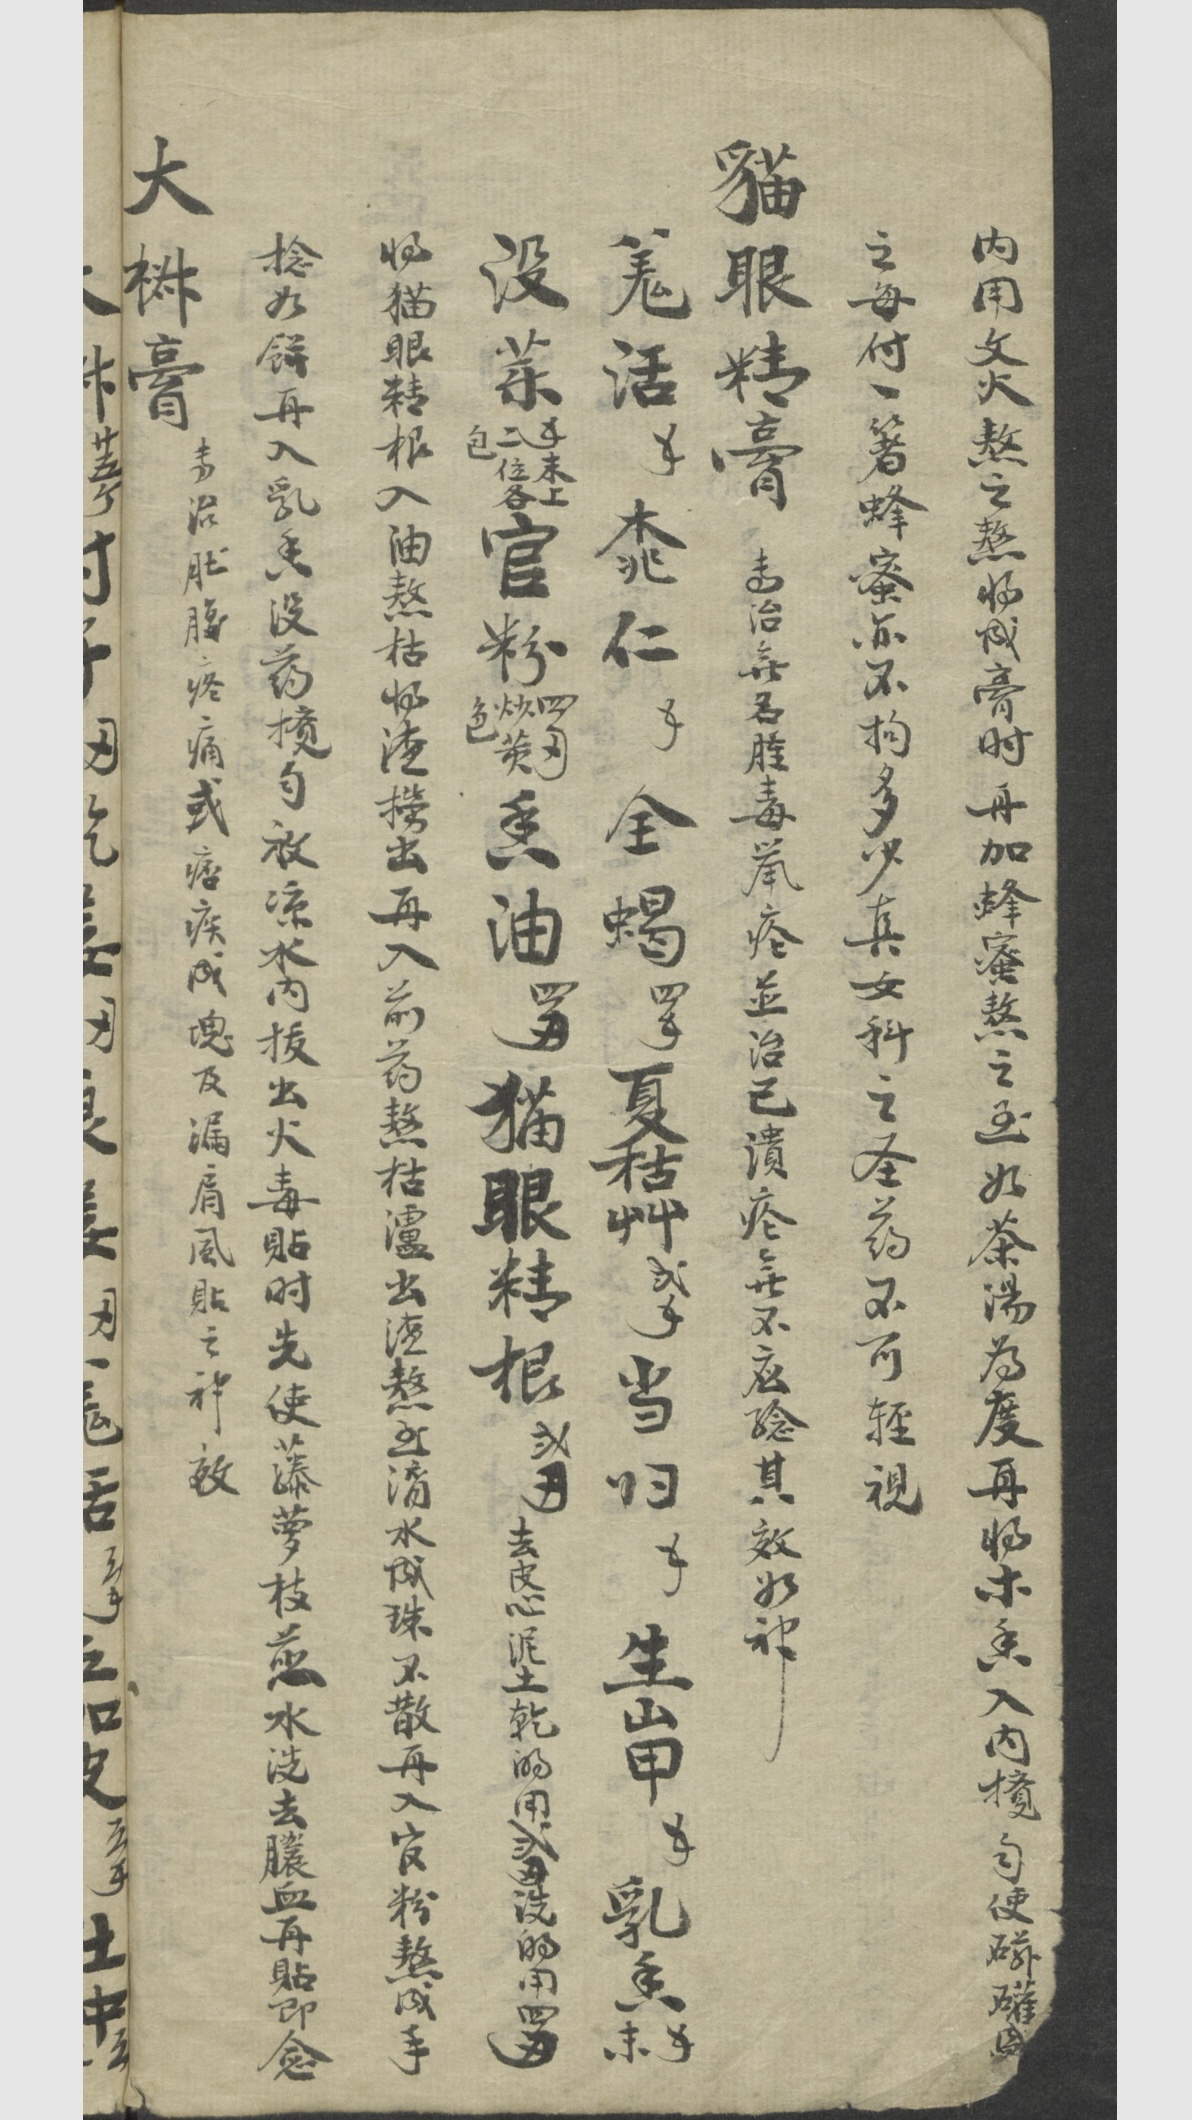 内用文火熬之熬将成膏时再加蜂蜜熬之至如茶湯為度再将木香入内搅匀使磁罐盛
之每付一箸蜂蜜亦不拘多少真女科之圣药不可轻視
貓眼精膏 专治無名腫毒鼠疮並治已潰疮無不应騐其效如神
羌活 桃仁 全蝎 夏枯艸 当归 生山甲 乳香末
没药 末上二位各包 官粉 四兩炒黄色 香油 猫眼精根 弍兩 去皮心泥土乾的用弍兩洗的用四兩
将猫眼精根入油熬枯将渣捞出再入前药熬枯瀘出渣熬至滴水成珠不散再入官粉熬成手
捻如餅再入乳香没药搅匀放凉水内拔出火毒貼时先使藤萝枝煎水洗去膿血再貼即愈
大麻膏 专治肚腹疼痛或痞疾成塊及漏肩风貼之神效